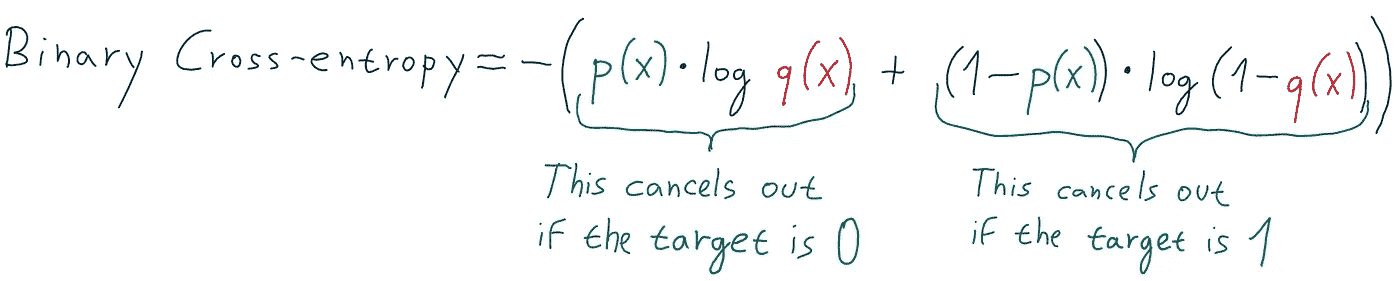 Binary Cross-entropy = -(p(x)·log q(x) + (1-p(x))·log(1-q(x)))
This cancels out
if the target is 0
This cancels out
if the target is 1